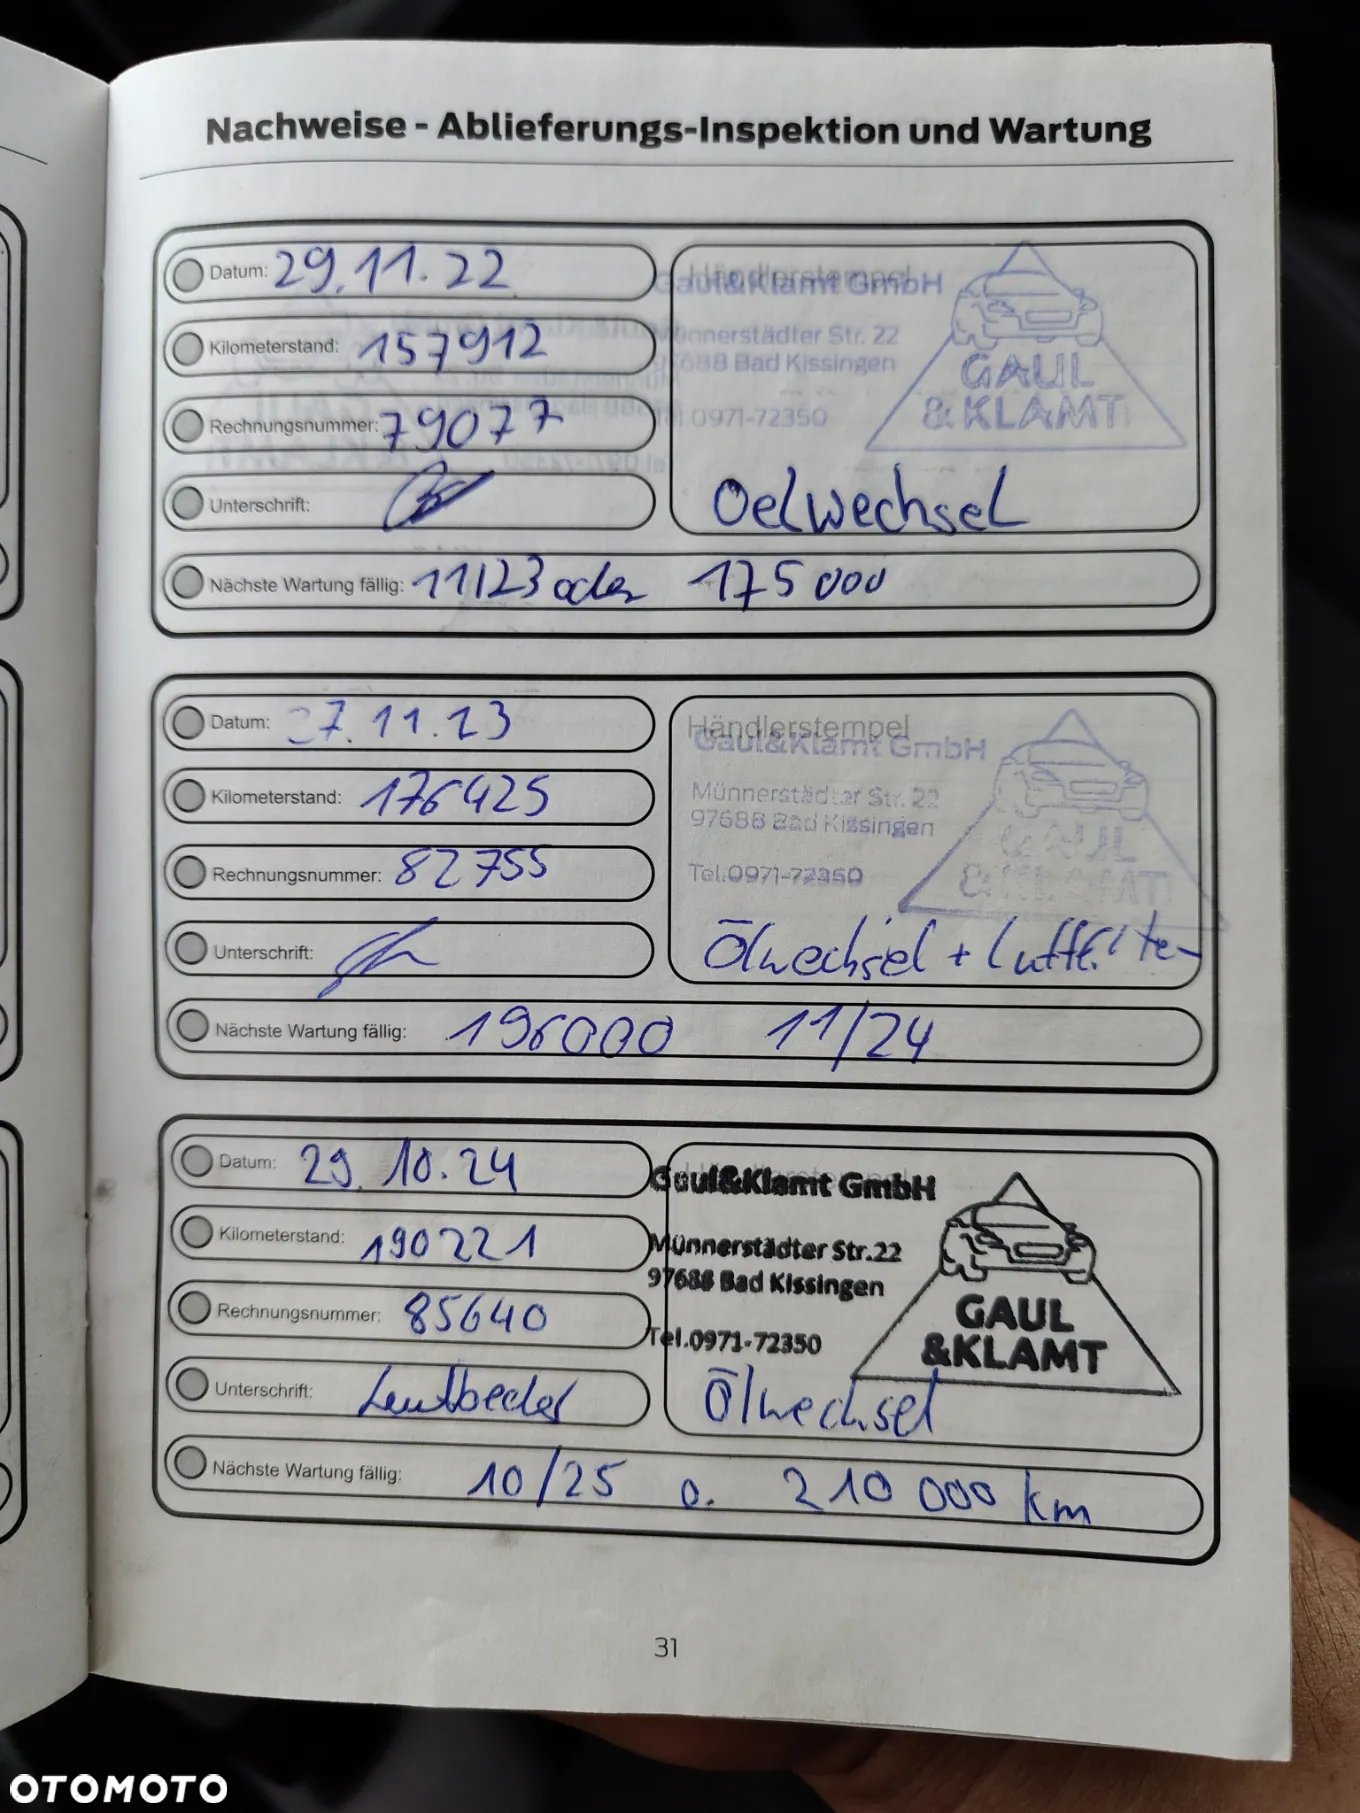 Nachweise - Ablieferungs-Inspektion und Wartung
Datum: 29.11.22
Kilometerstand: 157912
Rechnungsnummer: 79077
Unterschrift:
Händlerstempel
Gaul&Klamt GmbH
Münnerstädter Str. 22
97688 Bad Kissingen
Tel.0971-72350
GAUL
& KLAMT
Oelwechsel
Nächste Wartung fällig: 11/23 oder 175000
Datum: 27.11.23
Kilometerstand: 176425
Rechnungsnummer: 82755
Unterschrift:
Händlerstempel
Gaul&Klamt GmbH
Münnerstädter Str. 22
97688 Bad Kissingen
Tel.0971-72350
GAUL
& KLAMT
Ölwechsel + Luftfilter
Nächste Wartung fällig: 196000 11/24
Datum: 29.10.24
Kilometerstand: 190221
Rechnungsnummer: 85640
Unterschrift:
Händlerstempel
Gaul&Klamt GmbH
Münnerstädter Str.22
97688 Bad Kissingen
Tel.0971-72350
GAUL
&KLAMT
Ölwechsel
Nächste Wartung fällig: 10/25 o. 210 000 km
31
OTOMOTO